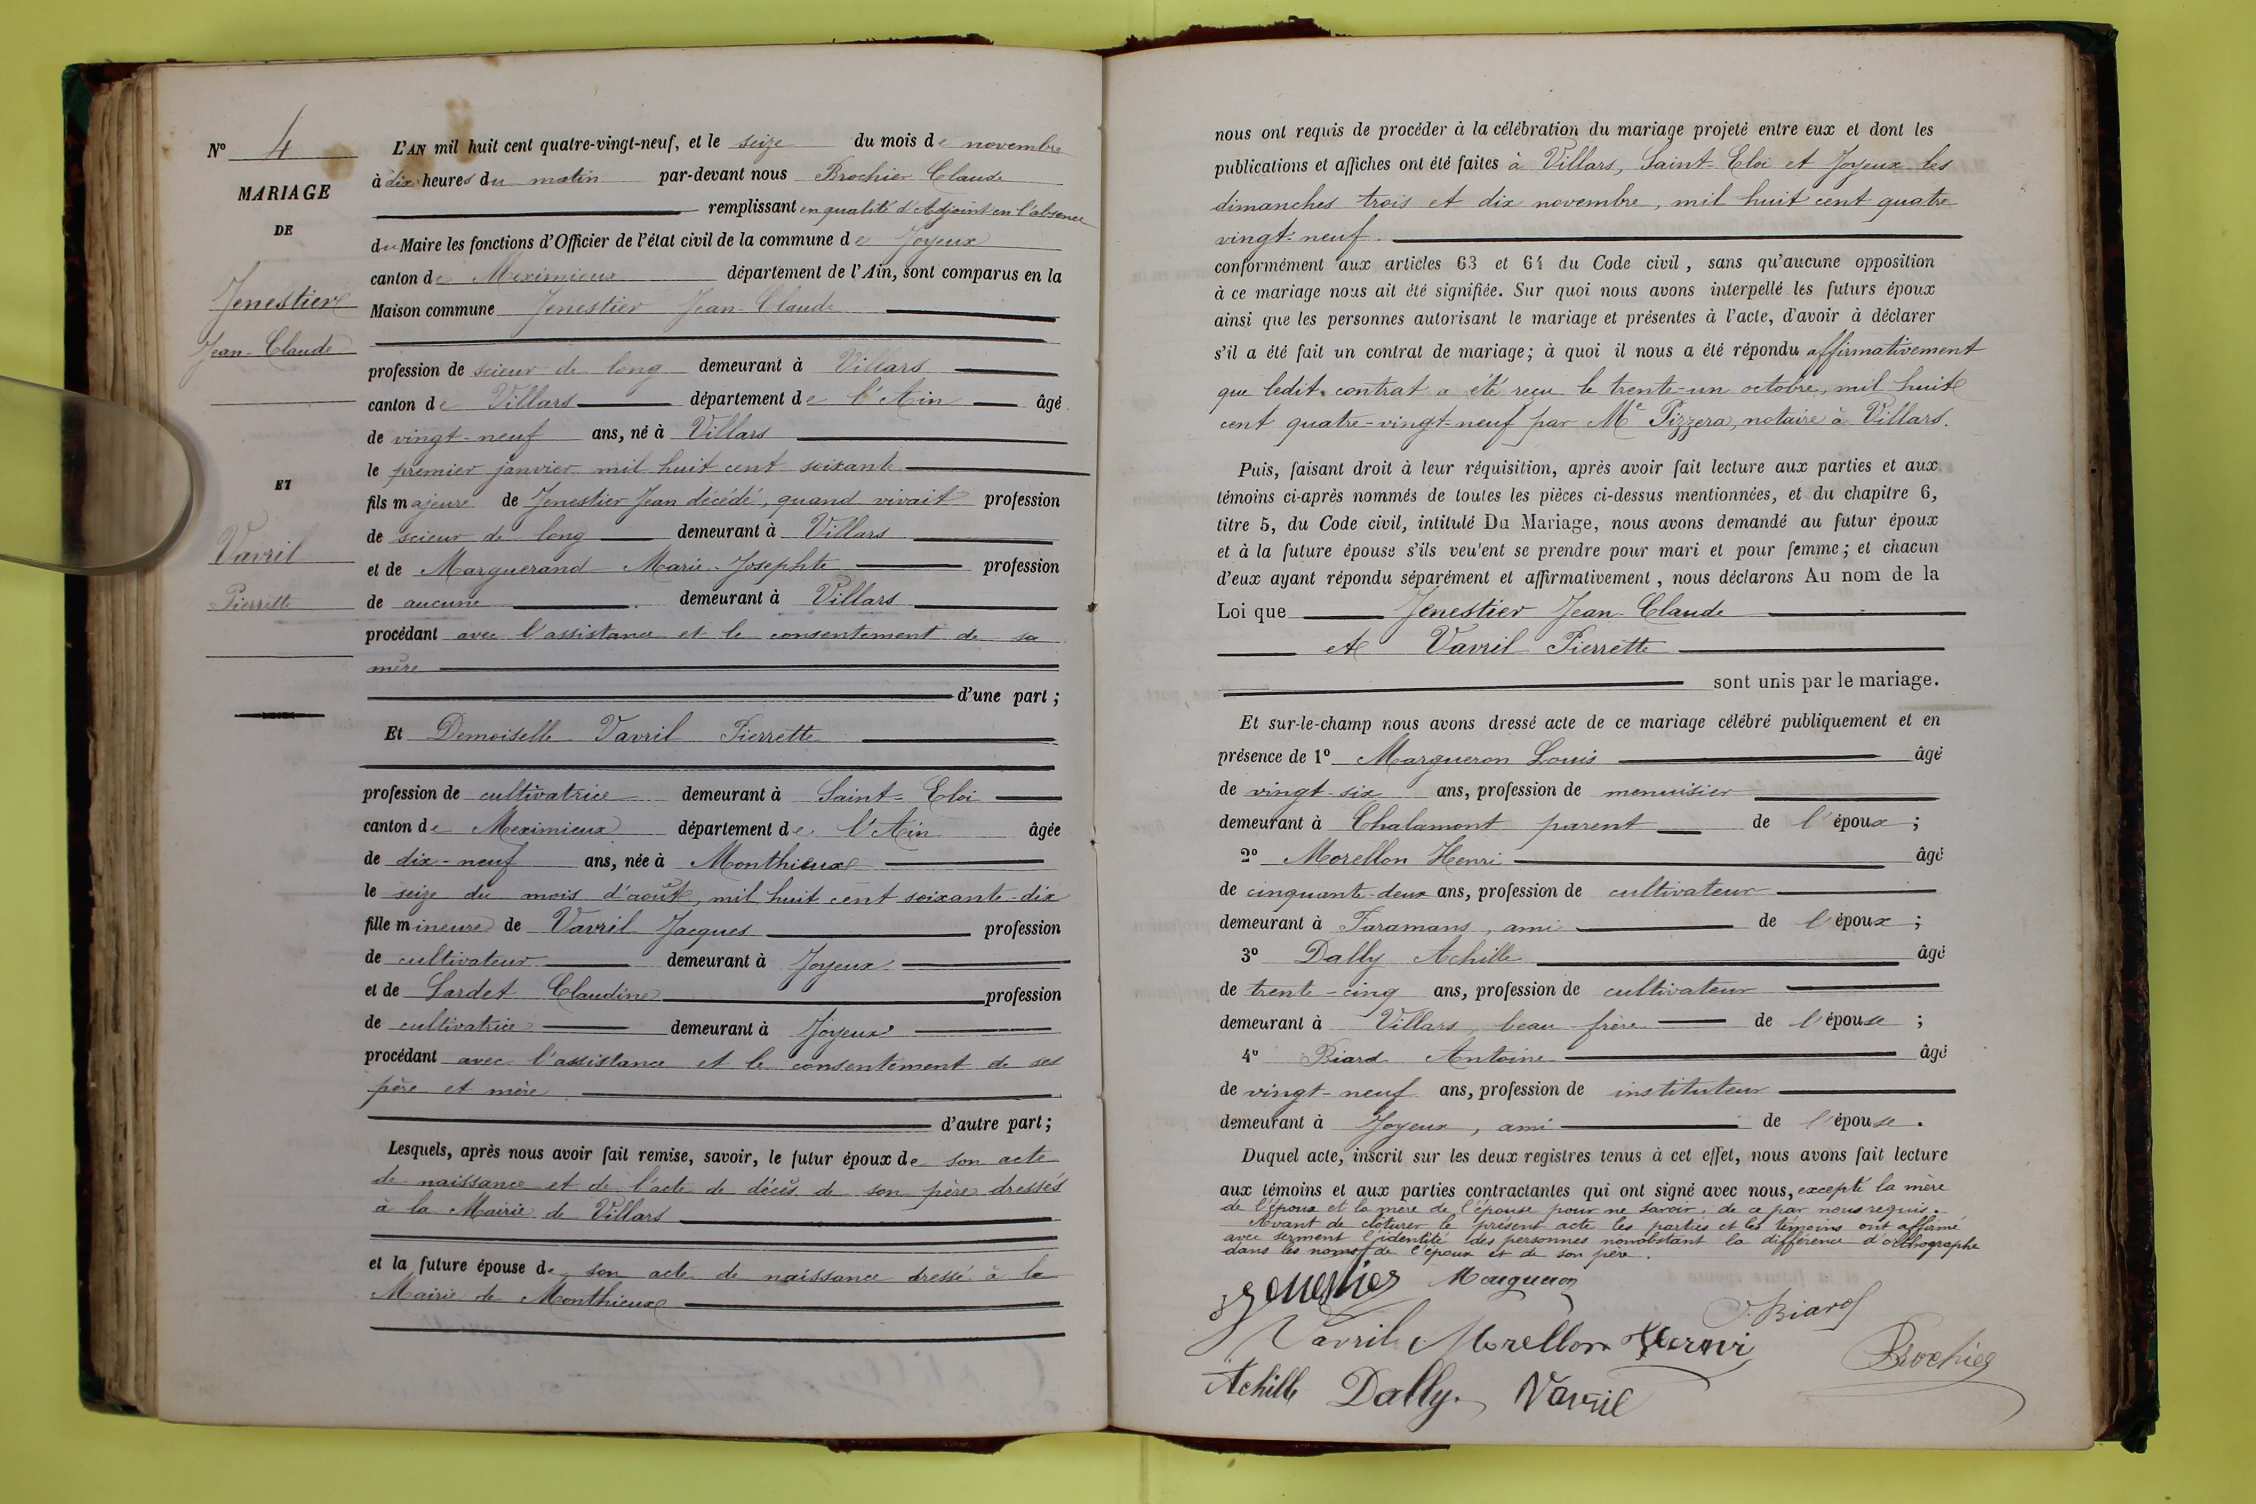 N° 4
MARIAGE
DE
Jenestier
Jean-Claude
ET
Vavril
Pierrette
L'AN mil huit cent quatre-vingt-neuf, et le seize du mois de novembre
à dix heures du matin par-devant nous Brochier Claude
remplissant en qualité d'Adjoint en l'absence
du Maire les fonctions d'Officier de l'état civil de la commune de Joyeux
canton de Meximieux département de l'Ain, sont comparus en la
Maison commune Jenestier Jean-Claude
profession de scieur de long demeurant à Villars
canton de Villars département de l'Ain âgé
de vingt-neuf ans, né à Villars
le premier janvier mil huit cent soixante
fils majeur de Jenestier Jean décédé, quand vivait profession
de scieur de long demeurant à Villars
et de Marguerand Marie-Josephte profession
de aucune demeurant à Villars
procédant avec l'assistance et le consentement de sa
mère
d'une part ;
Et Demoiselle Vavril Pierrette
profession de cultivatrice demeurant à Saint-Eloi
canton de Meximieux département de l'Ain âgée
de dix-neuf ans, née à Monthieux
le seize du mois d'août, mil huit cent soixante-dix
fille mineure de Vavril Jacques profession
de cultivateur demeurant à Joyeux
et de Lardet Claudine profession
de cultivatrice demeurant à Joyeux
procédant avec l'assistance et le consentement de ses
père et mère
d'autre part ;
Lesquels, après nous avoir fait remise, savoir, le futur époux de son acte
de naissance et de l'acte de décès de son père dressés
à la Mairie de Villars
et la future épouse de son acte de naissance dressé à la
Mairie de Monthieux
nous ont requis de procéder à la célébration du mariage projeté entre eux et dont les
publications et affiches ont été faites à Villars, Saint-Eloi et Joyeux les
dimanches trois et dix novembre, mil huit cent quatre
vingt-neuf
conformément aux articles 63 et 64 du Code civil, sans qu'aucune opposition
à ce mariage nous ait été signifiée. Sur quoi nous avons interpellé les futurs époux
ainsi que les personnes autorisant le mariage et présentes à l'acte, d'avoir à déclarer
s'il a été fait un contrat de mariage; à quoi il nous a été répondu affirmativement
que ledit contrat a été reçu le trente-un octobre, mil huit
cent quatre-vingt-neuf par Me Pizzera, notaire à Villars.
Puis, faisant droit à leur réquisition, après avoir fait lecture aux parties et aux
témoins ci-après nommés de toutes les pièces ci-dessus mentionnées, et du chapitre 6,
titre 5, du Code civil, intitulé Du Mariage, nous avons demandé au futur époux
et à la future épouse s'ils veu'ent se prendre pour mari et pour femme; et chacun
d'eux ayant répondu séparément et affirmativement, nous déclarons Au nom de la
Loi que Jenestier Jean-Claude
et Vavril Pierrette
sont unis par le mariage.
Et sur-le-champ nous avons dressé acte de ce mariage célébré publiquement et en
présence de 1° Margueron Louis âgé
de vingt-six ans, profession de menuisier
demeurant à Chalamont parent de l'époux ;
2° Morellon Henri âgé
de cinquante-deux ans, profession de cultivateur
demeurant à Faramans, ami de l'époux ;
3° Dally Achille âgé
de trente-cinq ans, profession de cultivateur
demeurant à Villars, beau-frère de l'épouse ;
4° Biard Antoine âgé
de vingt-neuf ans, profession de instituteur
demeurant à Joyeux, ami de l'épouse.
Duquel acte, inscrit sur les deux registres tenus à cet effet, nous avons fait lecture
aux témoins et aux parties contractantes qui ont signé avec nous, excepté la mère
de l'époux et la mère de l'épouse pour ne savoir, de ce par nous requis.
Avant de clôturer le présent acte les parties et les témoins ont affirmé
avec serment l'identité des personnes nonobstant la différence d'orthographe
dans les noms de l'époux et de son père.
Jenestier Margueron
Biard
Vavril Morellon Henri
Brochier
Achille Dally. Vavril